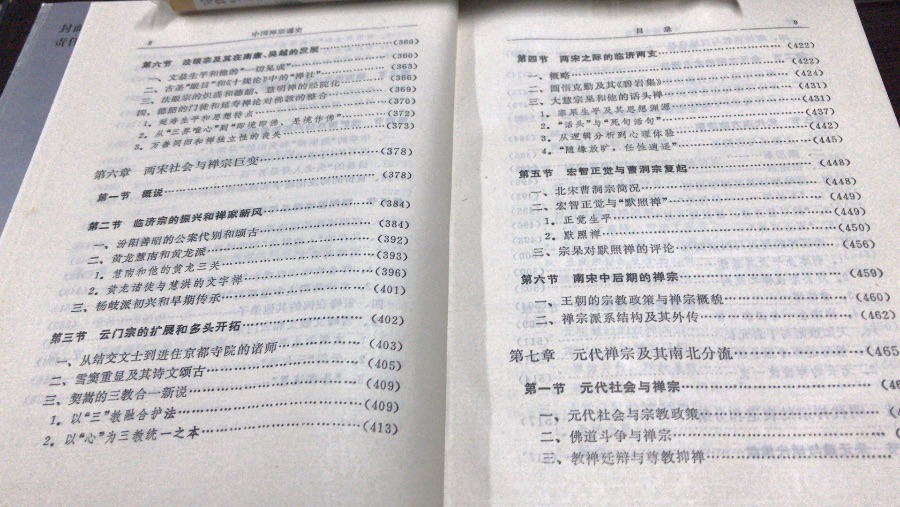 8 中国禅宗通史
第六节 法眼宗及其在南唐、吴越的发展……(360)
一、文益生平和他的“一切见成”……(360)
二、古圣“眼目”和《十规论》中的“禅社”……(363)
三、法眼宗的织盛和德韶、慧明禅的经院化……(366)
四、德韶的门徒和延寿禅论对佛教的整合……(369)
1。延寿生平和思想特点……(370)
2。从“三界唯心”到“即境即佛，是境作佛”……(372)
3。万善同归和禅独立性的丧失……(373)
第六章 两宋社会与禅宗巨变……(378)
第一节 概说……(378)
第二节 临济宗的振兴和禅家新风……(384)
一、汾阳善昭的公案代别和颂古……(384)
二、黄龙慧南和黄龙派……(392)
1。慧南和他的黄龙三关……(393)
2。黄龙诸徒与慧洪的文字禅……(396)
三、杨岐派初兴和早期传承……(401)
第三节 云门宗的扩展和多头开拓……(402)
一、从结交文士到进住京都寺院的诸师……(403)
二、雪窦重显及其诗文颂古……(405)
三、契嵩的三教合一新说……(409)
1。以“三”教融合护法……(409)
2。以“心”为三教统一之本……(413)
封面
责任
目录 9
第四节 两宋之际的临济两支……(422)
一、概略……(422)
二、圆悟克勤及其《碧岩集》……(424)
三、大慧宗杲和他的话头禅……(431)
1。宗杲生平及其思想渊源……(431)
2。“话头”与“死句活句”……(437)
3。从逻辑分析到心理体验……(442)
4。“随缘放旷，任性逍遥”……(445)
第五节 宏智正觉与曹洞宗复起……(448)
一、北宋曹洞宗简况……(448)
二、宏智正觉与“默照禅”……(449)
1。正觉生平……(449)
2。默照禅……(450)
三、宗杲对默照禅的评论……(456)
第六节 南宋中后期的禅宗……(459)
一、王朝的宗教政策与禅宗概貌……(460)
二、禅宗派系结构及其外传……(462)
第七章 元代禅宗及其南北分流……(465
第一节 元代社会与禅宗……(46
一、元代社会与宗教政策……(4
二、佛道斗争与禅宗……(
三、教禅廷辩与尊教抑禅……